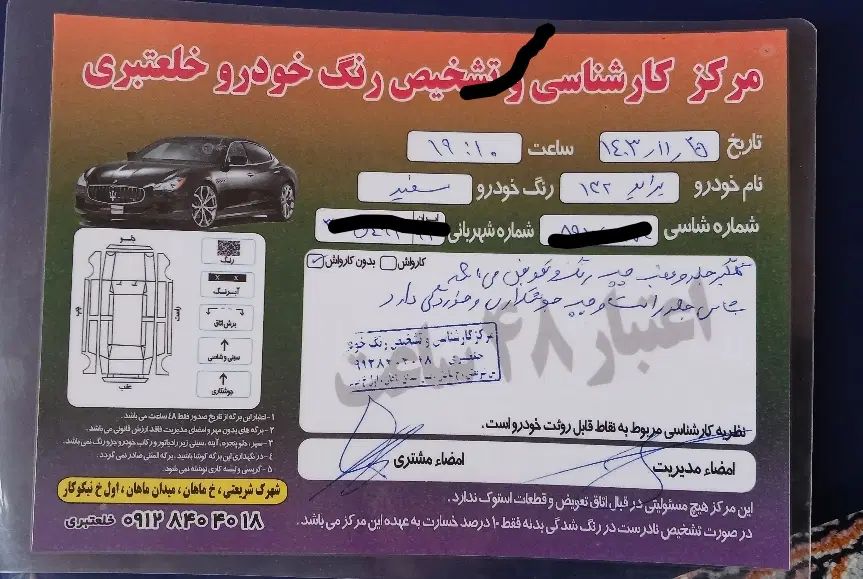 مرکز کارشناسی و تشخیص رنگ خودرو خلعتبری
تاریخ ۱٤۰۳/۱۱/۲۵ ساعت ۱۹:۱۰
نام خودرو پراید ۱۳۲ رنگ خودرو سفید
شماره شاسی شماره شهربانی
کارواش بدون کارواش
گلگیر جلو و عقب چپ رنگ و تعویض می باشد
شاسی جلو راست و چپ جوشکاری و خوردگی دارد
اعتبار ۴۸ ساعت
مرکز کارشناسی و تشخیص رنگ خودرو
نظریه کارشناسی مربوط به نقاط قابل روئت خودرو است.
امضاء مدیریت
امضاء مشتری
جلو
راست
چپ
عقب
رنگ
آبرنگ
برش اتاق
سینی و شاسی
جوشکاری
۱- اعتبار این برگه از تاریخ صدور فقط ۴۸ ساعت می باشد.
۲- برگه های بدون مهر و امضای مدیریت فاقد ارزش قانونی می باشد.
۳- سپر، دلو پنجره، آینه، سینی زیر رادیاتور و رکاب خودرو جزو رنگ نمی باشد.
۴- در نگهداری این برگه کوشا باشید. برگه المثنی صادر نمی گردد.
۵- گریسی و لیسه کاری نوشته نمی شود.
شهرک شریعتی، خ ماهان، میدان ماهان، اول خ نیکوکار
۰۹۱۲ ۸۴۰ ۴۰ ۱۸ خلعتبری
این مرکز هیچ مسئولیتی در قبال اتاق تعویض و قطعات استوک ندارد.
در صورت تشخیص نادرست در رنگ شدگی بدنه فقط ۱۰ درصد خسارت به عهده این مرکز می باشد.